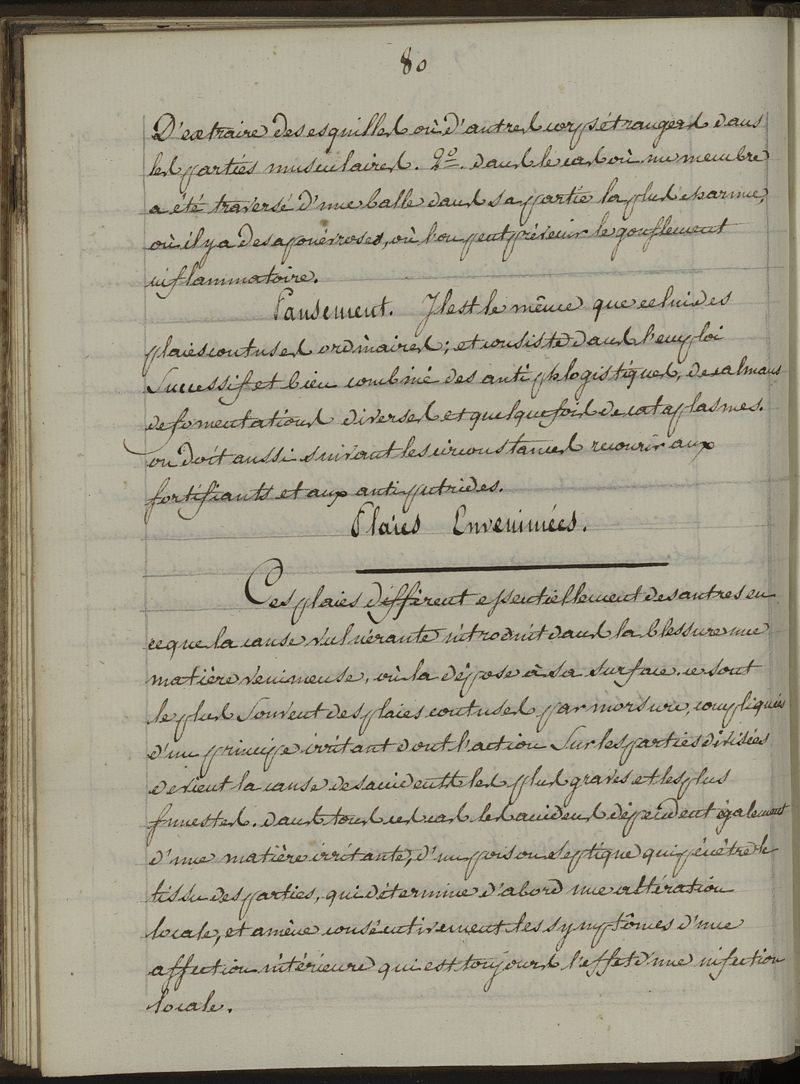 80
D'extraire des esquilles où d'autres corps étrangers dans
les parties musculaires. 2º. dans le cas où un membre
a été traversé d'une balle dans sa partie la plus charnue,
où il y a des aponévroses, où l'on peut prévenir le gonflement
inflammatoire.
Pansement. Il est le même que celui des
plaies contuses ordinaires; et consiste dans l'emploi
Successif et bien combiné des anti phlogistiques, de calmans
de fomentations diverses et quelque fois de cataplasmes.
on doit aussi suivant les circonstances recourir aux
fortifiants et aux anti putrides.
Plaies Envenimées.
Ces plaies différent essentiellement des autres en
ce que la cause vulnérante introduit dans la blessure une
matière venimeuse, où la dépose à sa surface. ce sont
le plus Souvent des plaies contuses par morsure, compliquées
d'un principe irritant dont l'action Sur les parties divisées
devient la cause des accidents les plus graves et les plus
funestes. dans tous ces cas les accidens dépendent également
d'une matière irritante, d'un poison septique qui pénètre le
tissu des parties, qui détermine d'abord une altération
locale, et amène conséentivement les symptômes d'une
affection intérieure qui est toujours l'effet d'une infection
locale.